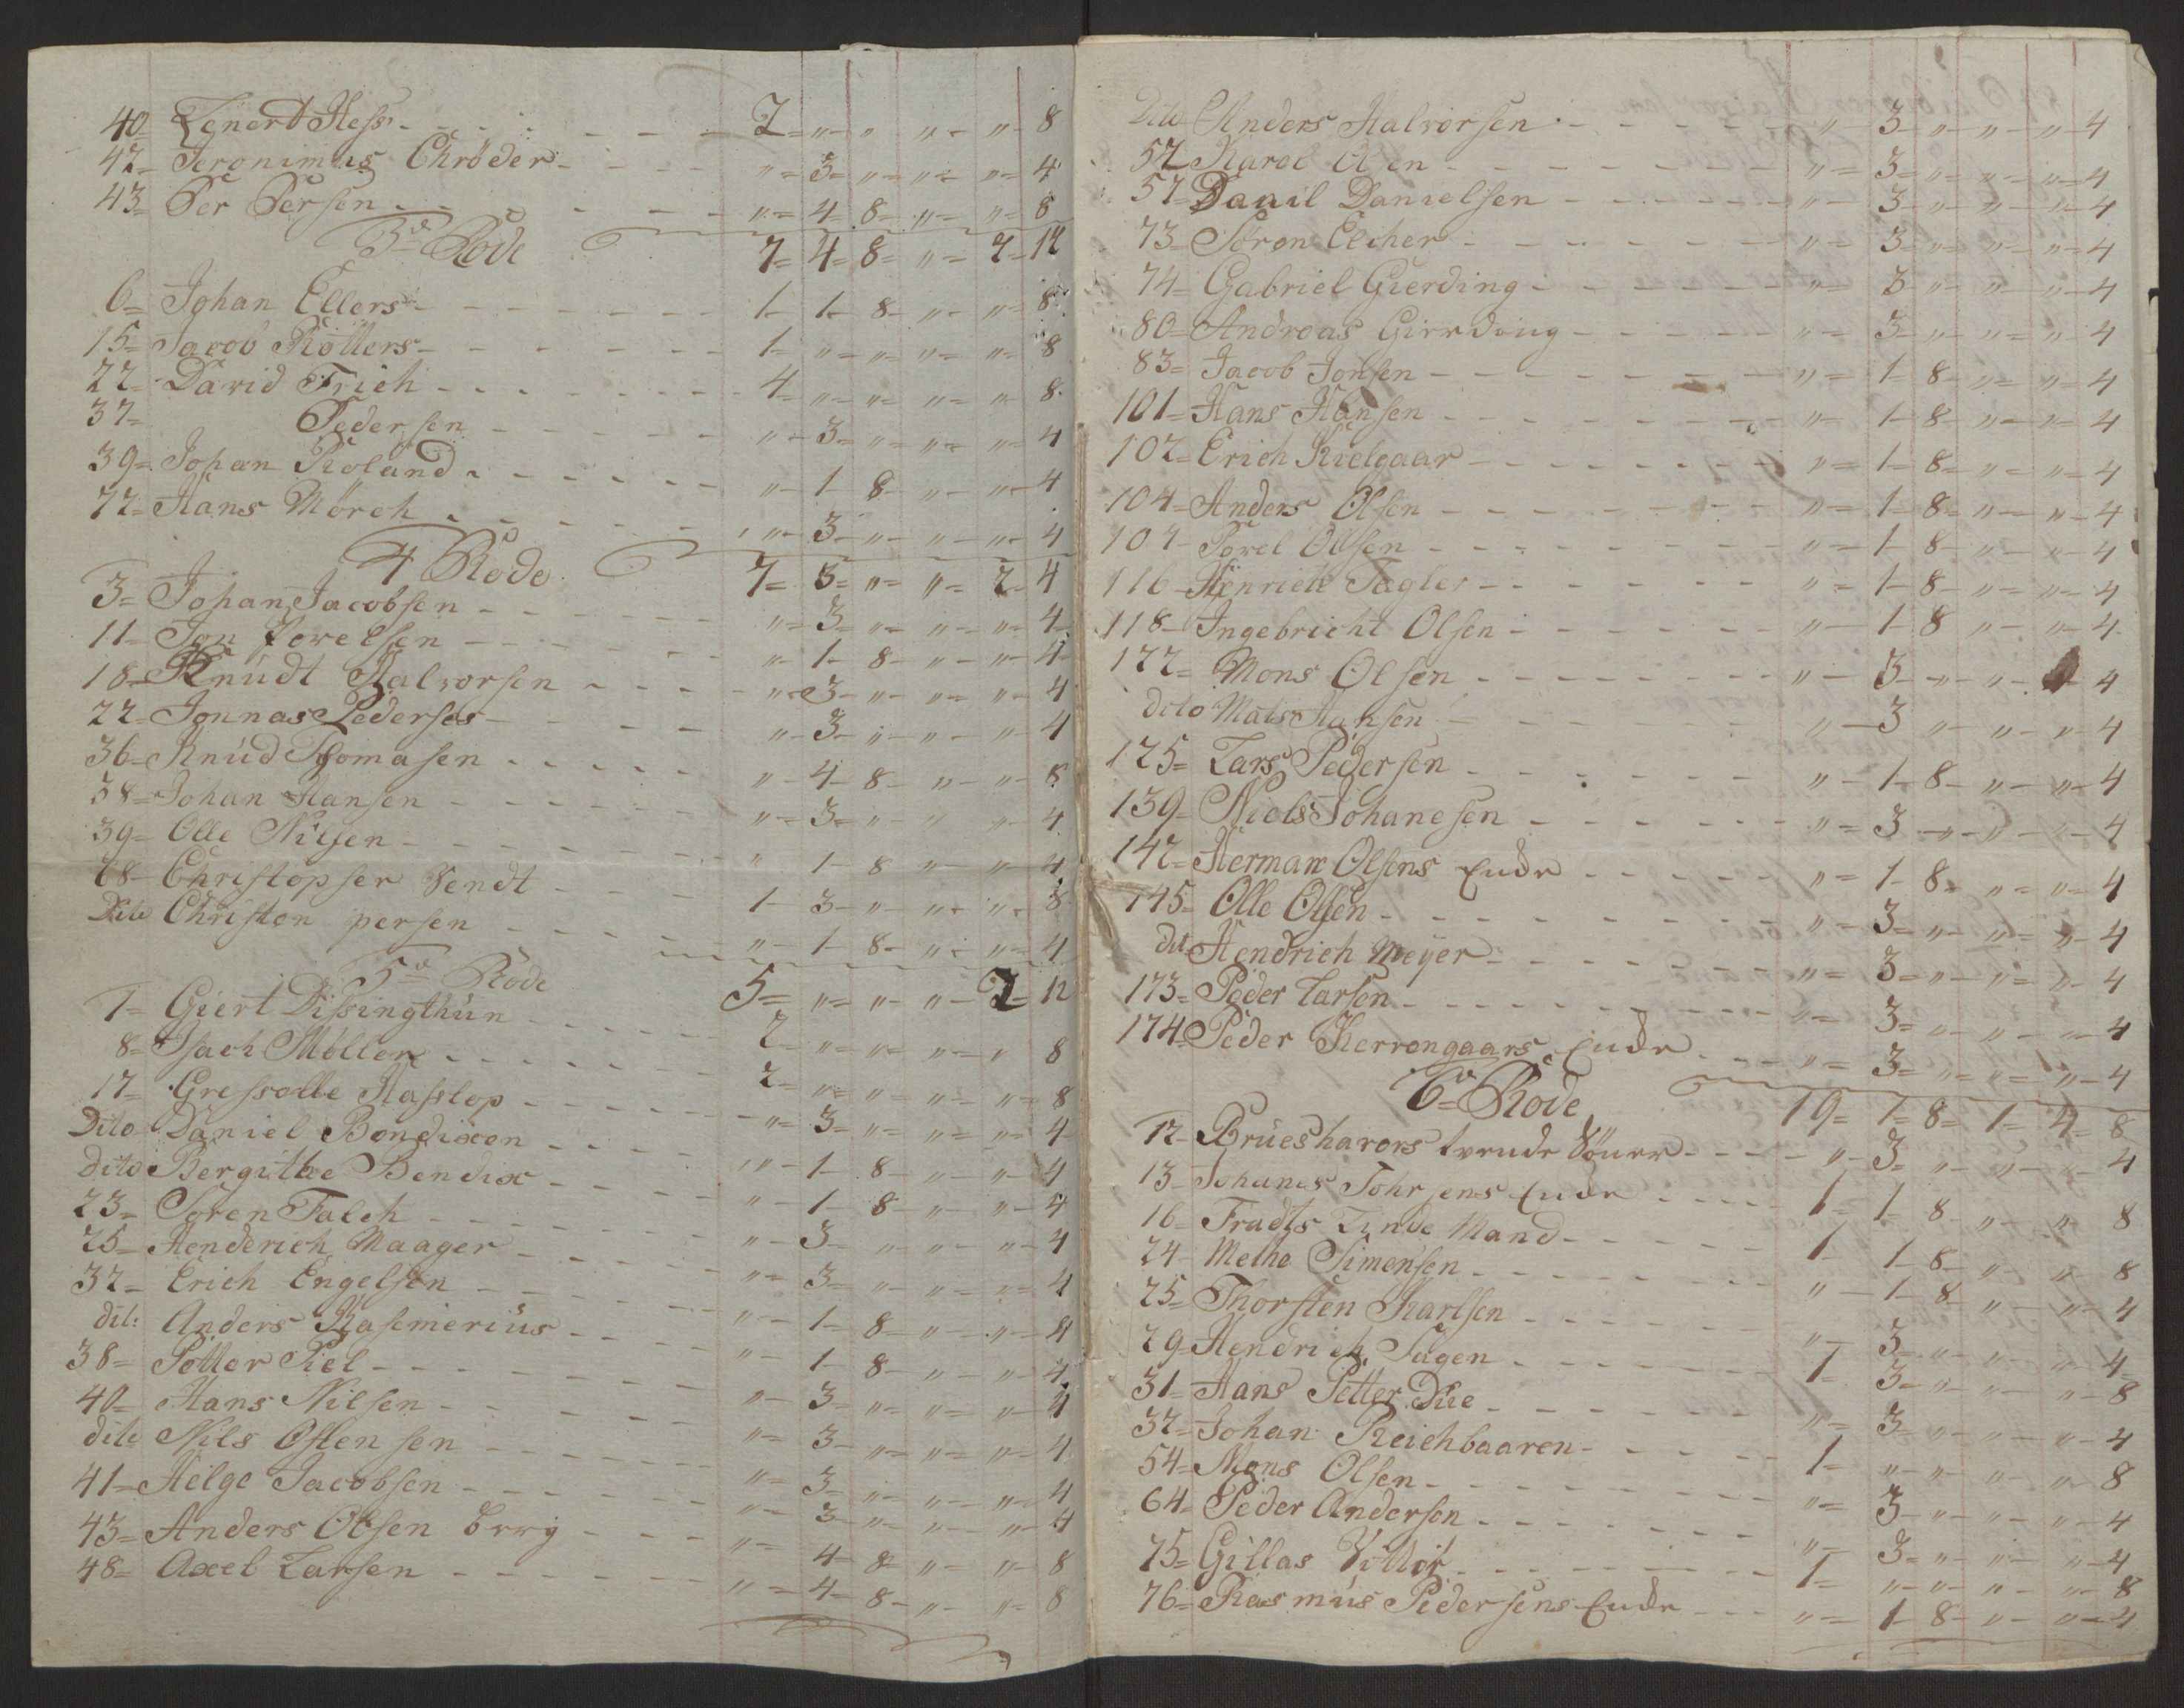 40= Lenert Hess - - - 2 = " - " " - " - 8
42= Jeronimus Chrøder - - - " = 3 = " = " = " = 4
43= Per Persen - - - " = 4 - 8 = " = " = 8
3de Rode 7 = 4 = 8 = " = 2 - 12
6= Johan Ellers - - - 1 - 1 - 8 - " - " = 8
15= Jacob Røllers - - - 1 - " = " = " = " = 8
22= David Frich - - - 4 = " = " = " = " - 8
37= Pedersen - - - " - 3 = " = " = " = 4
39= Johan Roland - - - " - 1 - 8 - " - " - 4
72= Hans Mørch - - - " - 3 - " - " - " - 4
4 Rode 7 = 5 = " = " = 2 - 4
3= Johan Jacobsen - - - " = 3 = " - " - " - 4
11= Jon Porelsen - - - " - 1 - 8 - " - " - 4
18= Knudt Halvorsen - - - " - 3 - " - " - " - 4
22= Jonnas Pederses - - - " - 3 - " - " - " - 4
36= Knud Thomasen - - - " - 4 - 8 - " - " - 8
38= Johan Hansen - - - " - 3 - " - " " - 4
39= Olle Nilsen - - - " 1 - 8 " - " - 4
68- Christopser Vendt - - - 1 - 3 - " - " - " - 8
Dito Christen persen - - - " - 1 - 8 - " - " = 4
5te Rode 5 = " = " - " - 2 = 12
1= Giert Dissingthun - - - 2 - " = " = " = " 8
8= Isach Møller - - - 2 - " = " = " = " = 8
17= Gressolle Hasslop - - - " = 3 = " = " = " = 4
Dito Daniel Bendixen - - - " - 1 - 8 - " - " - 4
dito Bergithe Bendix - - - " - 1 - 8 - " - " - 4
23= Søren Falch - - - " - 3 - " - " - " - 4
25= Henderich Maager - - - " - 3 - " - " - " = 4
32= Erich Engelsen - - - " - 1 - 8 - " - " - 4
dit: Anders Kasemerius - - - " - 1 - 8 - " - " - 4
38= Potter Piel - - - " - 3 - " = " = " - 4
40= Hans Nilsen - - - " = 3 - " = " = " - 4
dito Nils Ostensen - - - " = 3 - " - " - " - 4
41= Helge Jacobsen - - - " = 3 - " - " - " - 4
43= Anders Olsen berg - - - " = 4 - 8 - " - " - 8
48= Axel Larsen - - - " = 4 - 8 - " - " - 8
Dito Anders Halvorsen - - - " - 3 - " - " - " - 4
52 Karel Olsen - - - " = 3 - " = " = " = 4
57= Danil Danielsen - - - " - 3 - " - " - " - 4
73= Søren Elcher - - - " = 3 - " = " - " = 4
74= Gabriel Gierding - - - " = 3 " - " - " - 4
80= Andreas Girrding - - - " = 3 - " - " = " - 4
83= Jacob Jonsen - - - " = 1 - 8 - " = " - 4
101= Hans Hansen - - - " = 1 - 8 - " = " = 4
102= Erich Kielgaar - - - " = 1 - 8 = " = " = 4
104= Anders Olsen - - - " = 1 - 8 - " - " - 4
104- Porel Ollsen - - - " = 1 - 8 - " - " - 4
116- Henrich Tagler - - - " = 1 - 8 - " = " - 4
118- Ingebricht Olsen - - - " - 1 - 8 " - " - 4
122= Mons Olsen - - - " - 3 - " - " - " - 4
dito Mats Hansen - - - " - 3 " - " - " - 4
125= Lars Pedersen - - - " - 1 - 8 - " - " - 4
139= Niels Johanesen - - - " = 3 - " - " - " - 4
142= Herman Olsens Enche - - - " = 1 - 8 = " = " = 4
145= Olle Olsen - - - " - 3 = " - " = " - 4
dit Hendrich Meyer - - - " = 3 = " - " = " - 4
173= Peder Larsen - - - " = 3 = " - " - " - 4
174= Peder Kerrongaars Enche - - - " = 3 = " - " = " - 4
6te Rode 19 = 1 = 8 = 1 = 4 = 8
12= Brues harors tvende Sönner - - - " - 3 = " - " - " - 4
13= Johanes Tohrsens Enche - - - 1 - 1 - 8 - " - " 8
16- Fradts Tinde Mand - - - 1 1 - 8 - " - " 8
24- Methe Simensen - - - " - 1 - 8 - " - " - 4
25= Thorsten Karlsen - - - " - 3 - " - " - " - 4
29= Hendrich Tagen - - - 1 - 3 - " - " - " - 8
31= Hans Petter Due - - - " = 3 - " - " - " - 4
32= Johan Reichbaaren - - - 1 = " - " - " - " - 8
54= Mons Olsen - - - " = 3 - " - " - " - 4
64= Peder Andersen - - - " = 3 = " - " - " - 4
75= Gillas - - - 1 = " - " - " - " - 8
76= Rasmus Pedersens Enche - - - " = 1 - 8 - " - " - 4